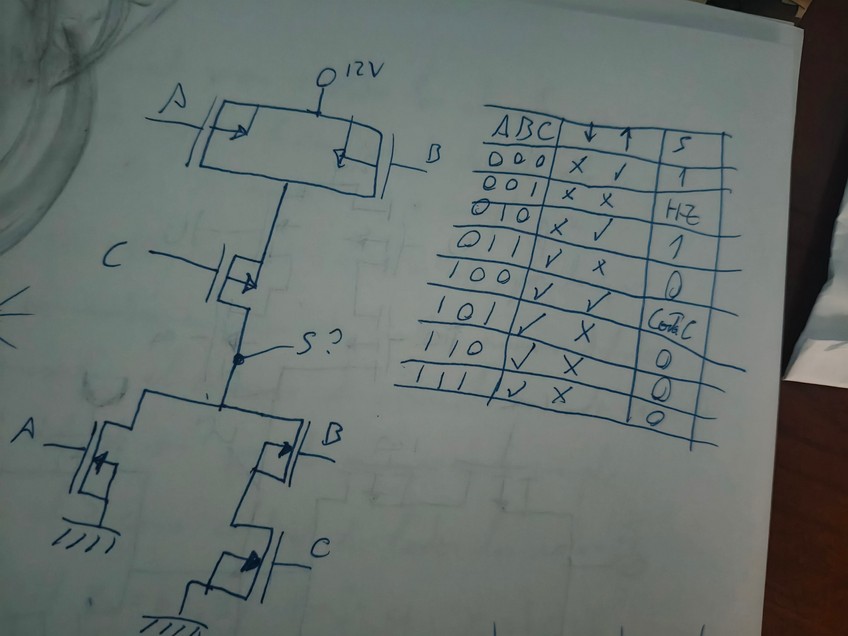 12V
A
B
C
S?
A
B
C
ABC ↓ ↑ S
000 × ✓ 1
001 × × HZ
010 × ✓ 1
011 ✓ × 0
100 ✓ ✓
101 ✓ × 0
110 ✓ × 0
111 ✓ × 0